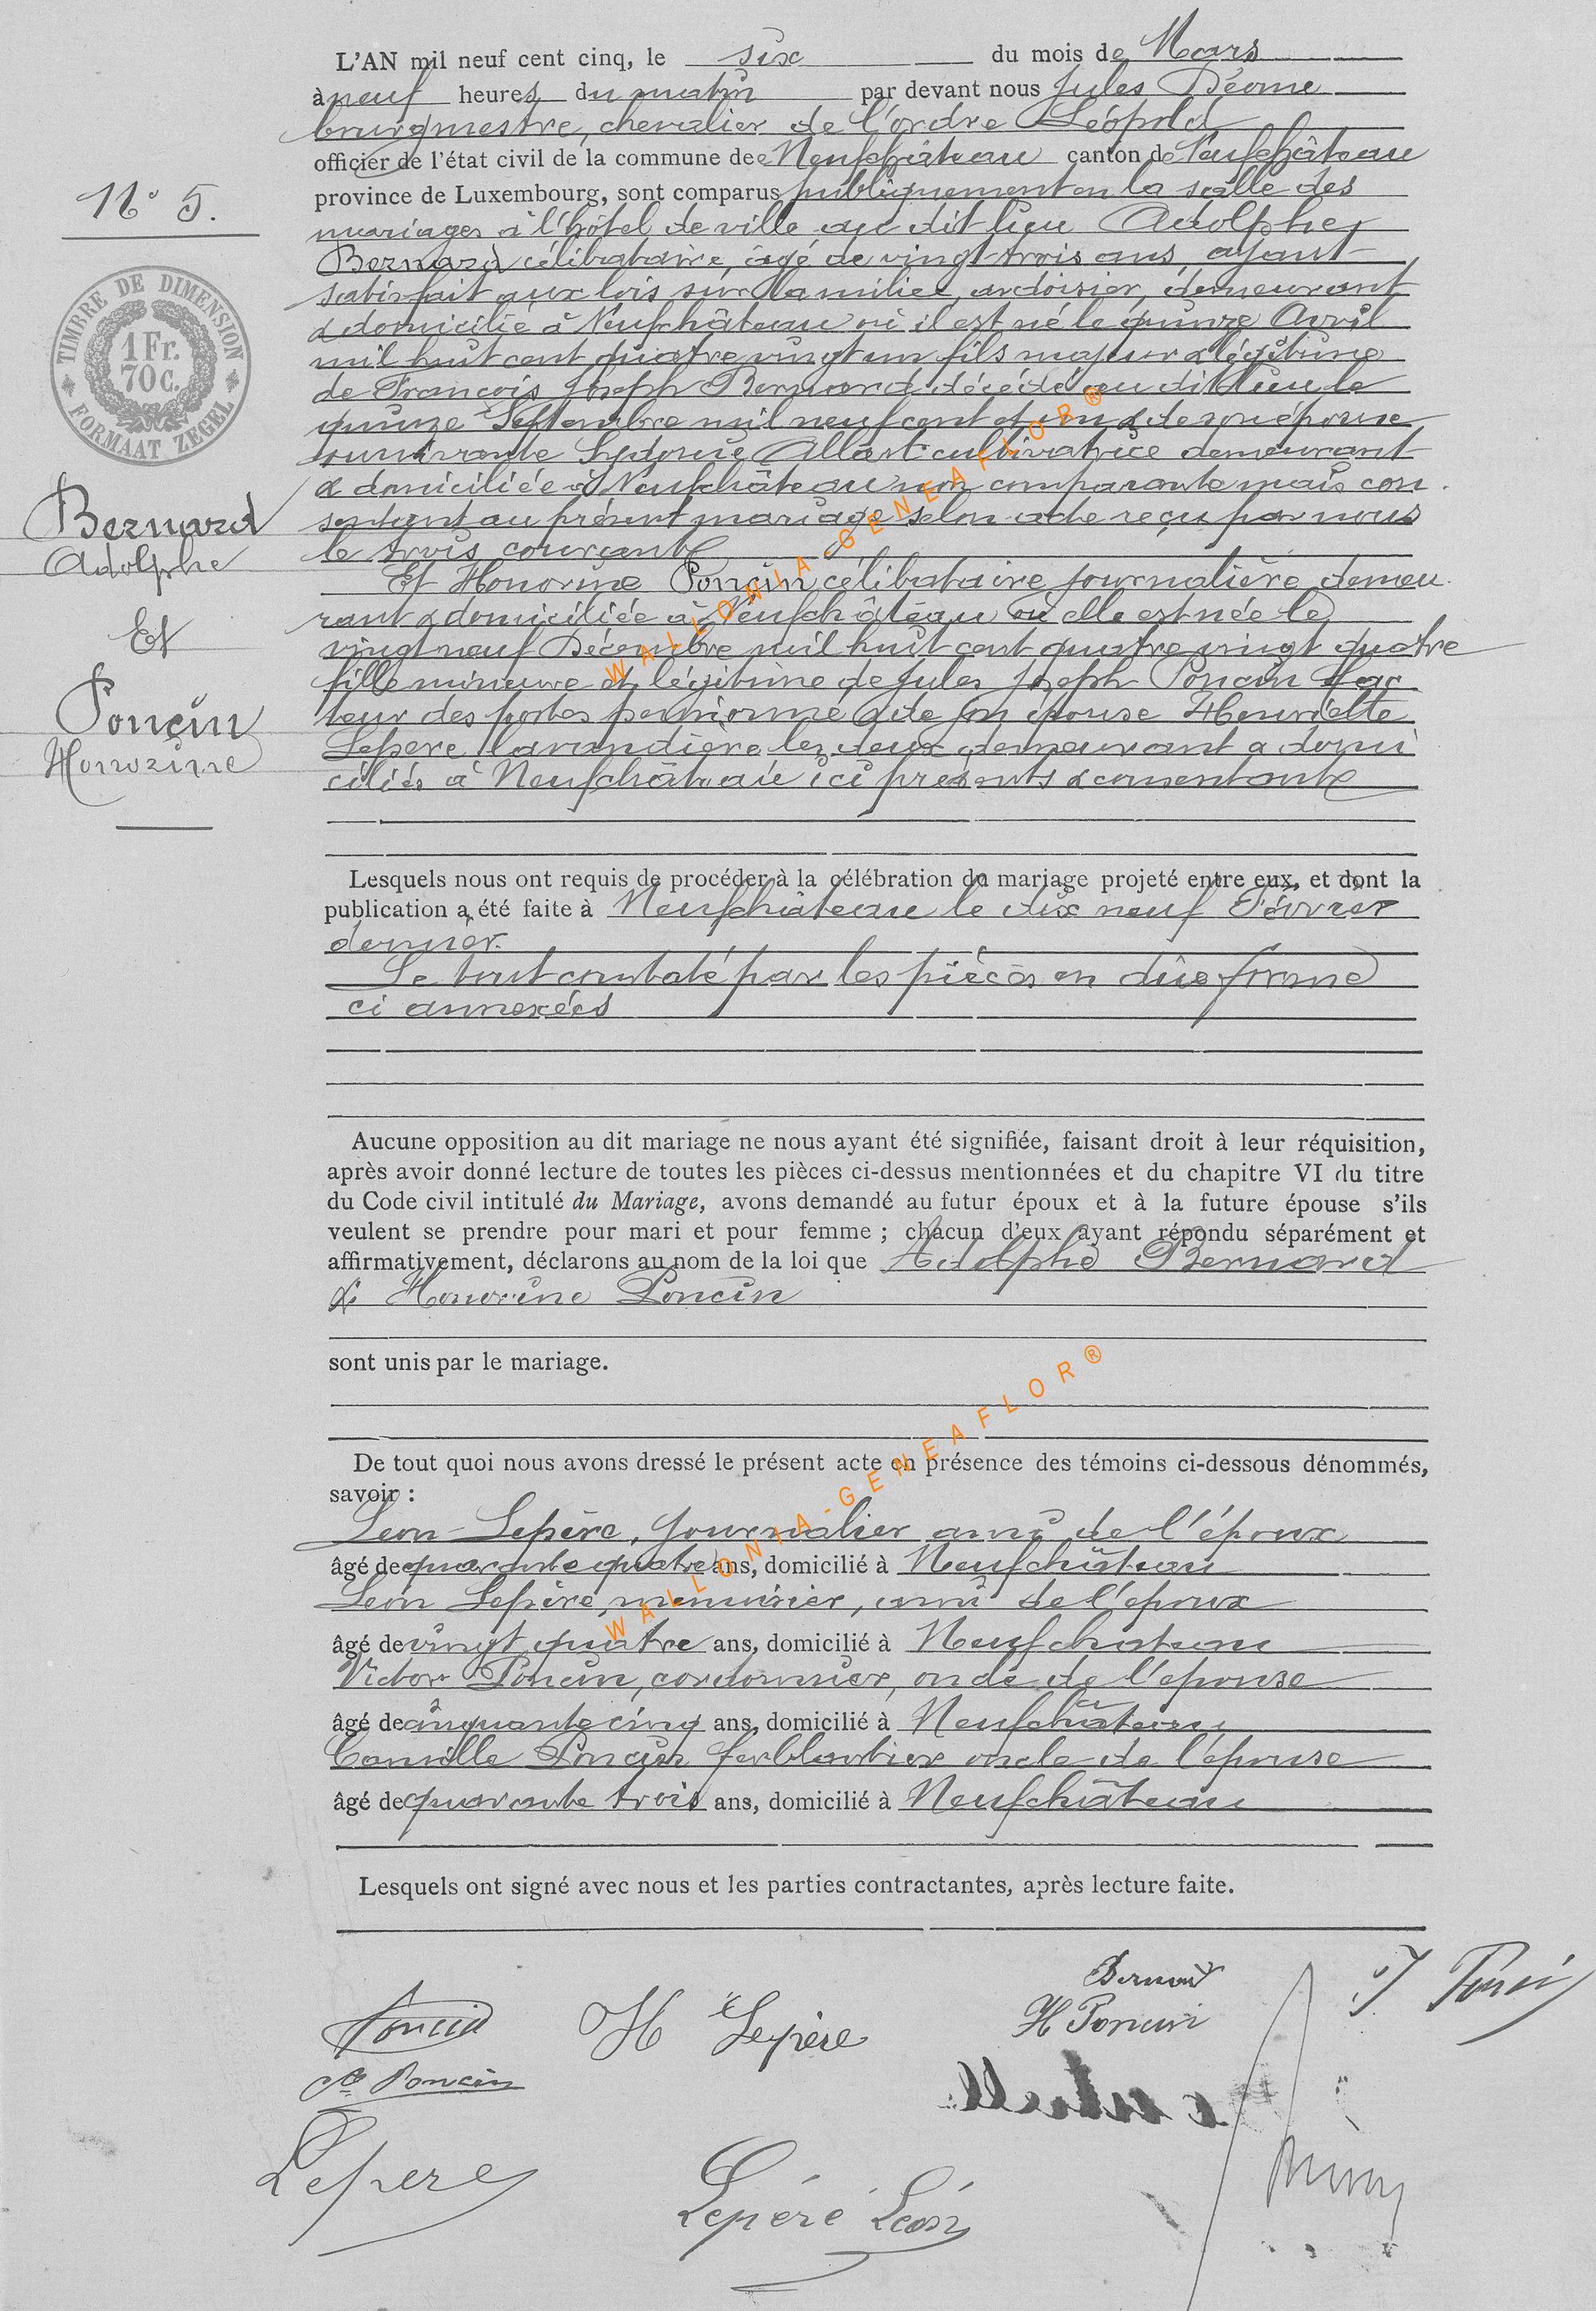 L'AN mil neuf cent cinq, le six du mois de Mars
à neuf heures du matin par devant nous Jules
bourgmestre, chevalier de l'ordre Léopold
officier de l'état civil de la commune de Neufchâteau canton de Neufchâteau
province de Luxembourg, sont comparus publiquement en la salle des
N° 5.
mariages à l'hôtel de ville au dit lieu Adolphe
Bernard célibataire, âgé de vingt trois ans, ayant
satisfait aux lois sur la milice, ardoisier, demeurant
& domicilié à Neufchâteau où il est né le quinze Avril
mil huit cent quatre vingt un fils majeur & légitime
de François Joseph Bernard décédé au dit lieu le
quinze Septembre mil neuf cent et un & de son épouse
survivante Sydonie Allard cultivatrice demeurant
& domiciliée à Neufchâteau non comparante mais con
sentant au présent mariage selon acte reçu par nous
le trois courant
TIMBRE DE DIMENSION
1 Fr.
70 C.
FORMAAT ZEGEL
Bernard
Adolphe
Et
Poncin
Honorine
Et Honorine Poncin célibataire journalière demeu
rant & domiciliée à Neufchâteau où elle est née le
vingt neuf Décembre mil huit cent quatre vingt quatre
fille mineure et légitime de Jules Joseph Poncin fac
teur des postes pensionné & de son épouse Henriette
Lepère lavandière les deux demeurant & domi
ciliés à Neufchâteau ici présents & consentants
Lesquels nous ont requis de procéder à la célébration du mariage projeté entre eux, et dont la
publication a été faite à Neufchâteau le dix neuf Février
dernier.
Le tout constaté par les pièces en dûe forme
ci annexées
Aucune opposition au dit mariage ne nous ayant été signifiée, faisant droit à leur réquisition,
après avoir donné lecture de toutes les pièces ci-dessus mentionnées et du chapitre VI du titre
du Code civil intitulé du Mariage, avons demandé au futur époux et à la future épouse s'ils
veulent se prendre pour mari et pour femme ; chacun d'eux ayant répondu séparément et
affirmativement, déclarons au nom de la loi que Adolphe Bernard
& Honorine Poncin
sont unis par le mariage.
De tout quoi nous avons dressé le présent acte en présence des témoins ci-dessous dénommés,
savoir :
Léon Lepère, journalier ami de l'époux
âgé de quarante quatre ans, domicilié à Neufchâteau
Léon Lepère, menuisier, ami de l'époux
âgé de vingt quatre ans, domicilié à Neufchateau
Victor Poncin, cordonnier, oncle de l'épouse
âgé de cinquante cinq ans, domicilié à Neufchâteau
Camille Poncin ferblantier oncle de l'épouse
âgé de quarante trois ans, domicilié à Neufchâteau
Lesquels ont signé avec nous et les parties contractantes, après lecture faite.
Bernard
J J Poncin
Poncin
H Lepère
H Poncin
Cle Poncin
Lepere
Lepéré Léon
WALLONIA-GENEAFLOR®
WALLONIA-GENEAFLOR®